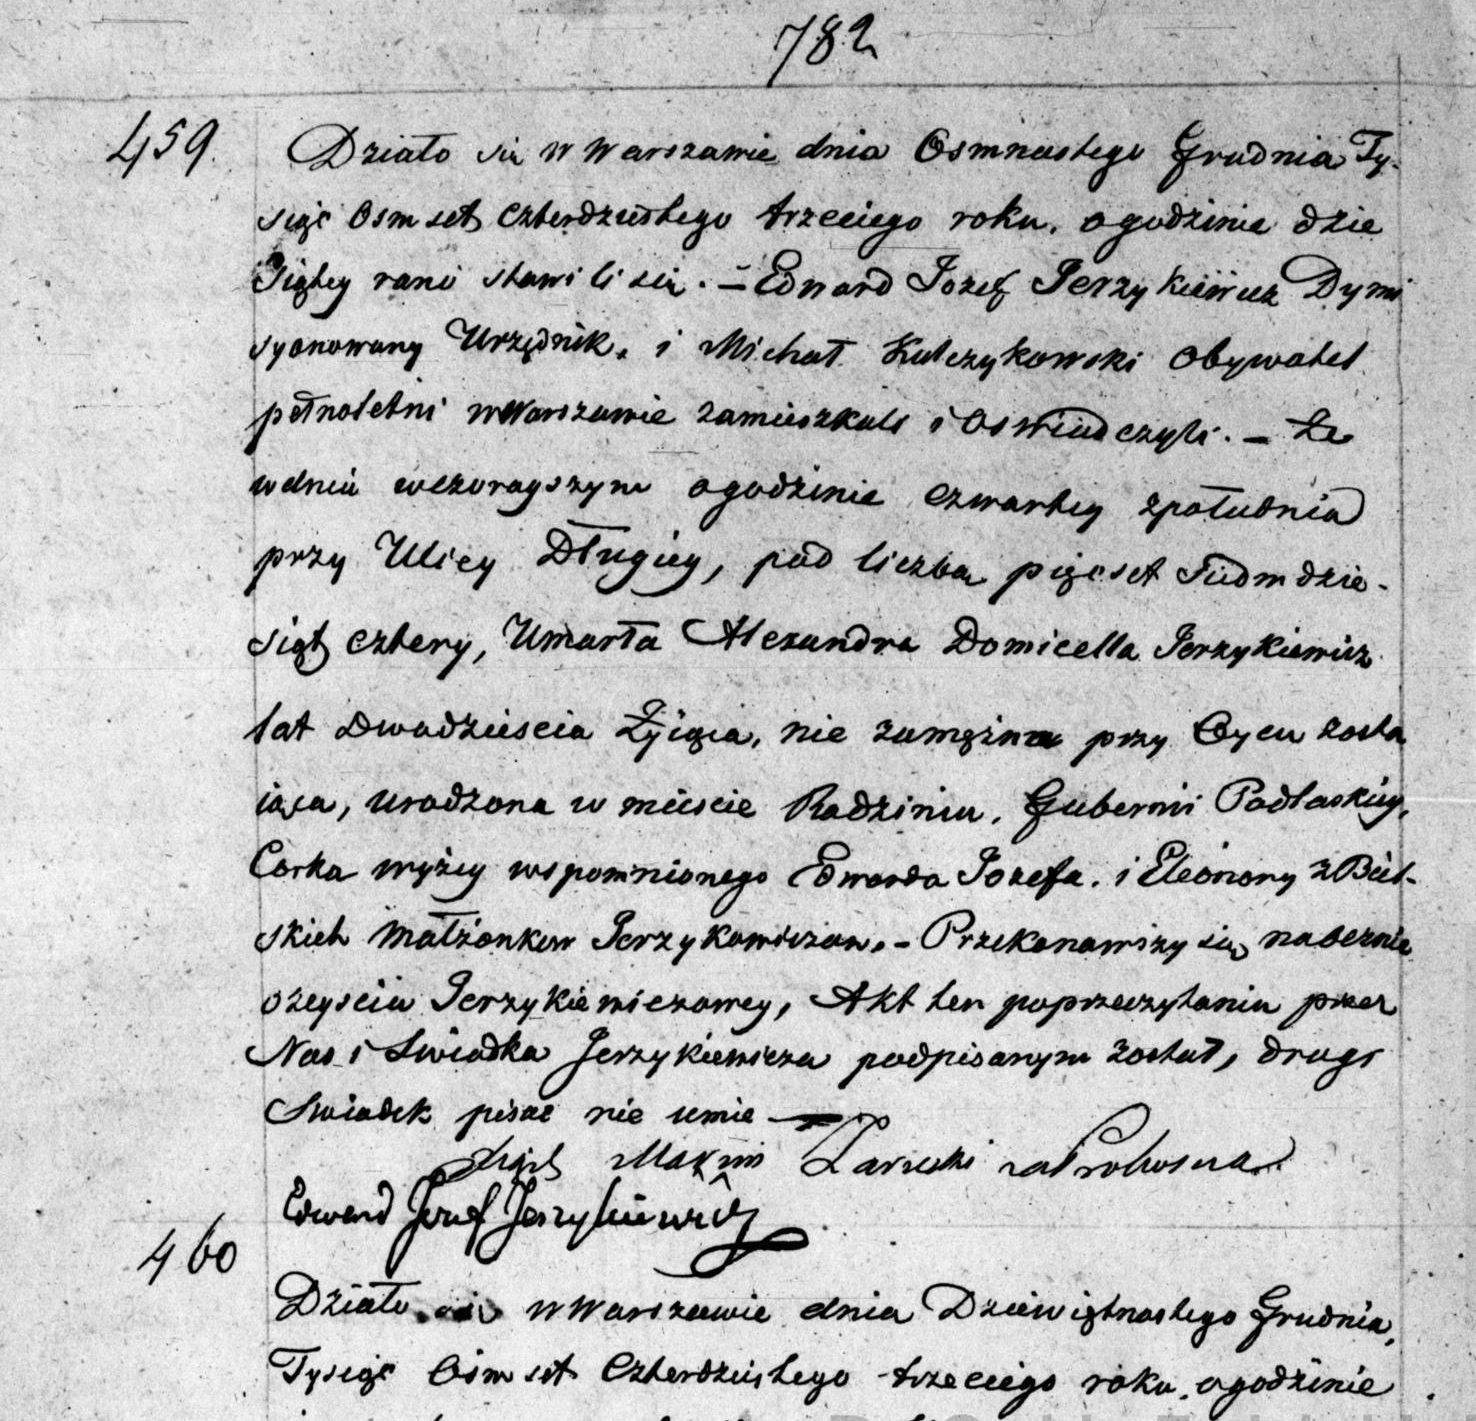 782
459.
Działo się w Warszawie dnia Osmnastego Grudnia Ty-
siąc Osm set Czterdziestego trzeciego roku. o godzinie dzie
siątey rano stawili się. – Edward Jozef Jerzykiewicz Dymi
syonowany Urzędnik, i Michał Kulczykowski Obywatel
pełnoletni w Warszawie zamieszkali i Oswiadczyli. – Że
w dniu wczorayszym o godzinie czwartey z południa
przy Ulicy Długiey, pod liczba pięcset siedmdzie-
siąt cztery, Umarła Alexandra Domicella Jerzykiewicz
lat Dwadziescia Żyiąca, nie zamężna przy Oycu zosta
iąca, urodzona w miescie Radziniu, Gubernii Podlaskiey,
Corka wyżey wspomnionego Edwarda Jozefa. i Eleonory z Biel-
skich Małżonkow Jerzykowiczow. – Przekonawszy się naocznie
o zeysciu Jerzykiewiczowey, Akt ten po przeczytaniu przez
Nas i Swiadka Jerzykiewicza podpisanym został, drugi
Swiadek pisac nie umie —
Maxim za Proboszcza
Edward Jozef Jerzykiewicz
460
Działo się w Warszawie dnia Dziewiętnastego Grudnia,
Tysiąc Osm set Czterdziestego trzeciego roku, o godzinie